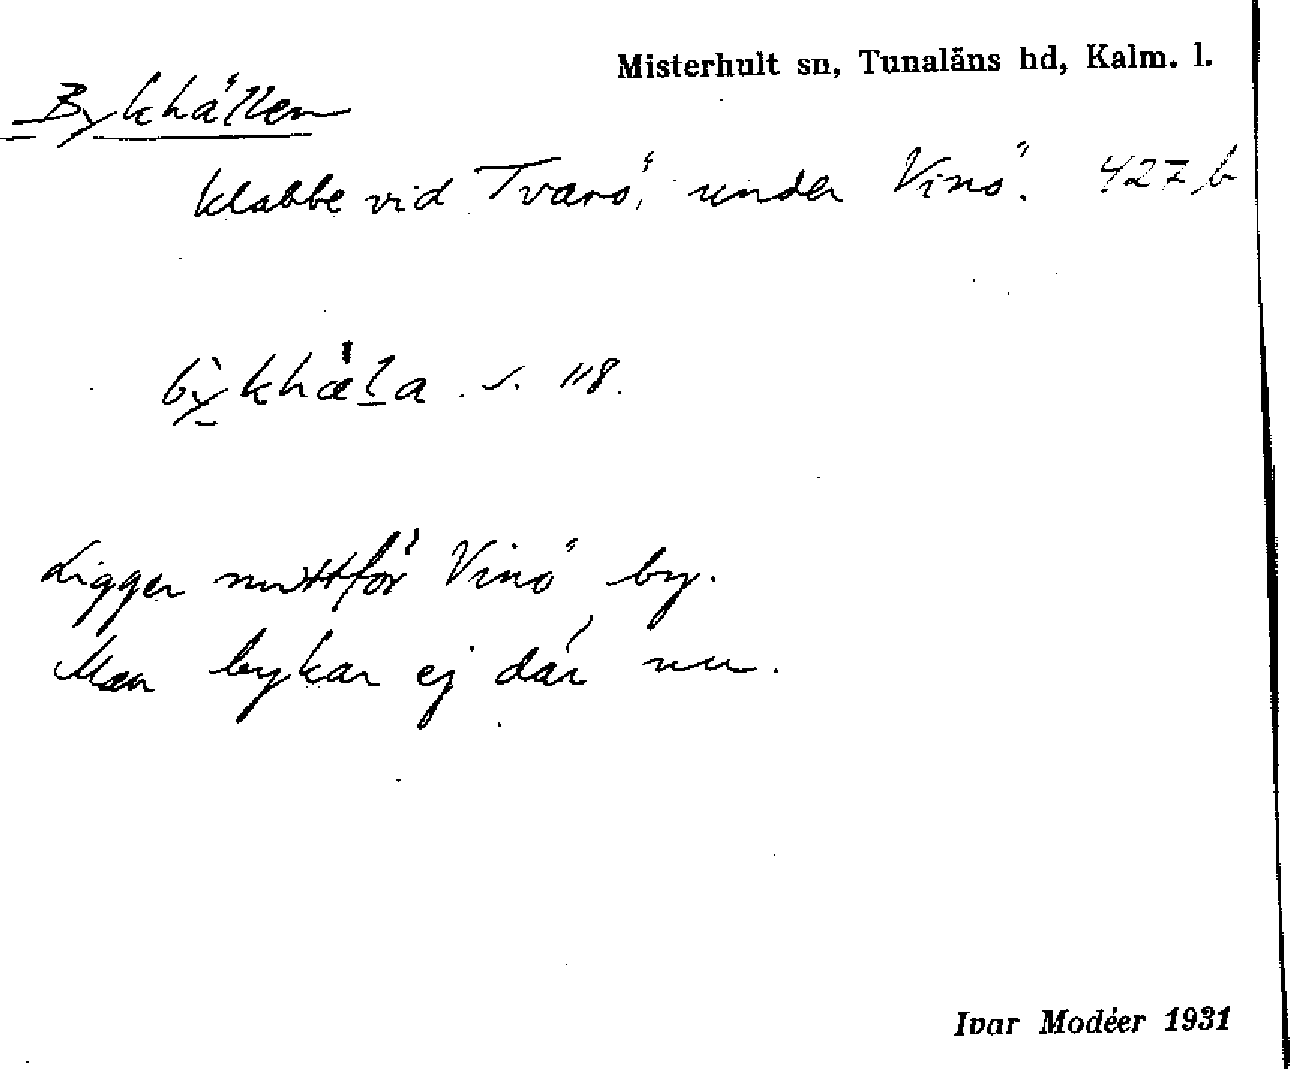 Misterhult sn, Tunaläns hd, Kalm. l.
Bykhällen
klabbe vid Tvärö, under Vinö. 427 b
s. 118.
Ligger mittför Vinö by.
Man bykar ej där nu.
Ivar Modéer 1931